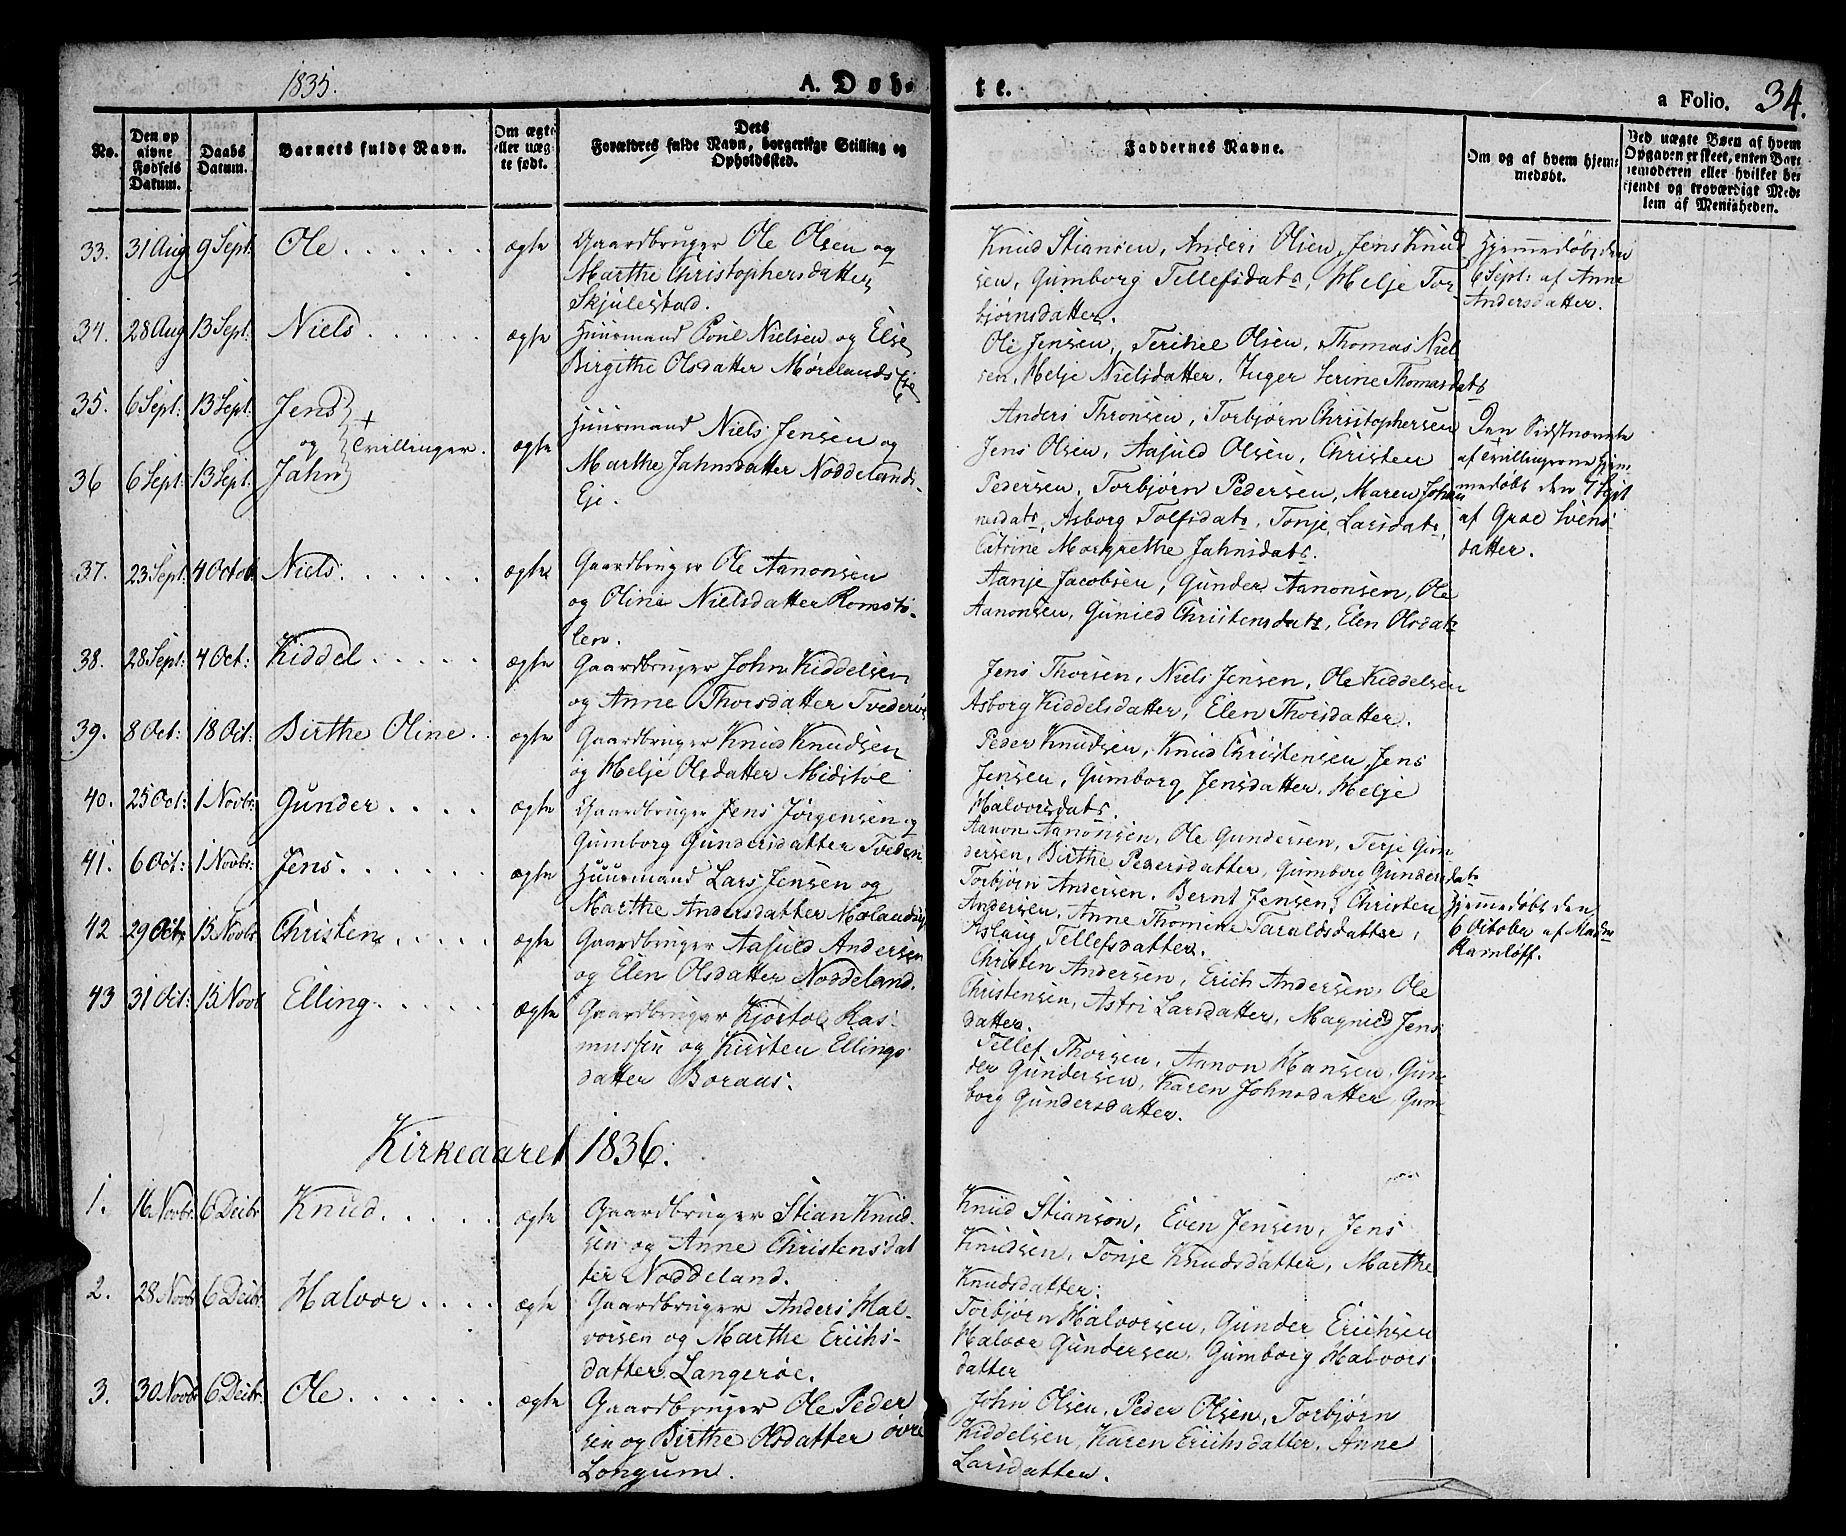 1835.
A. Døb-
te.
a Folio. 34.
No.
Den op
givne
Fødsels
Datum.
Daabs
Datum.
Barnets fulde Navn.
Om ægte
eller uæg-
te født.
Dets
Forældres fulde Navn, borgerlige Stilling og
Opholdssted.
Faddernes Navne.
Om og af hvem hjem-
medøbt.
Ved uægte Børn af hvem
Opgaven er skeet, enten Bar-
nemoderen eller hvilket be-
kjendt og troværdigt Med-
lem af Menigheden.
33. 31 Aug 9 Sept: Ole . . . . ægte Gaardbruger Ole Olsen og
Marthe Christophersdatter
Skjulestad.
Knud Stiansen, Anders Olsen, Jens Knud
sen, Gumborg Tellefsdatr, Helje Tor-
bjørnsdatter.
Hjemmedøbt den
6 Sept: af Anne
Andersdatter.
34. 28 Aug 13 Sept: Niels . . . . ægte Huusmand Poul Nielsen og Else
Birgithe Olsdatter Mørelands Eje
Ole Jensen, Olsen, Thomas Niel
sen, Helje Nielsdatter, Inger Serine Thomasdatr
35. 6 Sept: 13 Sept: Jens
og + Tvillinger.
36 6 Sept: 13 Sept: Jahn
ægte
Huusmand Niels Jensen og
Marthe Jahnsdatter Noddelands-
Eje.
Anders Thronsen, Torbjørn Christophersen
Jens Olsen, Aasuld Olsen, Christen
Pedersen, Torbjørn Pedersen, Maren Johan
nesdatr, Asborg Tolfsdatr, Tonje Larsdatr,
Catrine Margrethe Jahnsdatr.
Den Sidstnævnte
af Tvillingerne hjem-
medøbt den 7 Sept
af Groe Svens
datter.
37. 23 Sept: 4 Octob: Niels . . . . ægte Gaardbruger Ole Aanonsen
og Oline Nielsdatter Romstø-
len.
Aanje Jacobsen, Gunder Aanonsen, Ole
Aanonsen, Gunild Christensdatr, Elen Olsdatr
38. 28 Sept: 4 Oct: Kiddel . . . . ægte Gaardbruger John Kiddelsen
og Anne Thorsdatter
Jens Thorsen, Niels Jensen, Ole Kiddelsen
Asborg Kiddelsdatter, Elen Thorsdatter.
39. 8 Oct: 18 Oct: Birthe Oline . . ægte Gaardbruger Knud Knudsen
og Helje Olsdatter Midstøe
Peder Knudsen, Knud Christensen, Jens
Jensen, Gumborg Jensdatter, Helje
Halvorsdatr.
40. 25 Oct: 1 Novbr: Gunder . . . . ægte Gaardbruger Jens Jørgensen og
Gumborg Gundersdatter Tveden
Aanon Aanonsen, Ole Gundersen, Terje Gun
dersen, Birthe Pedersdatter, Gumborg Gundersdatr
41. 6 Oct: 1 Novbr: Jens . . . . ægte Huusmand Lars Jensen og
Marthe Andersdatter
Torbjørn Andersen, Bernt Jensen, Christen
Andersen, Anne Thomine Taraldsdatter,
Aslaug Tellefsdatter.
Hjemmedøbt den
6 October af Madm
Ramløff.
42 29 Oct: 15 Novbr Christen . . . . ægte Gaardbruger Aasuld Andersen
og Elen Olsdatter Noddeland.
Christen Andersen, Erich Andersen, Ole
Christensen, Astri Larsdatter, Magnild Jens
datter.
43 31 Oct: 15 Novbr Elling . . . . ægte Gaardbruger Kjøstol Ras-
mussen og Kirsten Ellings
datter Boraas.
Tellef Thorsen, Aanon Hansen, Gun-
der Gundersen, Karen Johnsdatter, Gum-
borg Gundersdatter.
Kirkeaaret 1836.
1. 16 Novbr 6 Decbr Knud . . . . ægte Gaardbruger Stian Knud-
sen og Anne Christensdat
ter Noddeland.
Knud Stianson, Even Jensen, Jens
Knudsen, Tonje Knudsdatter, Marthe
Knudsdatter.
2. 28 Novbr 6 Decbr: Halvor . . . . ægte Gaardbruger Anders Hal-
vorsen og Marthe Erichs-
datter Langerøe.
Torbjørn Halvorsen, Gunder Erichsen
Halvor Gundersen, Gumborg Halvors
datter
3. 30 Novbr 6 Decbr: Ole . . . . ægte Gaardbruger Ole Peder
sen og Birthe Olsdatter øvre
Longum.
John Olsen, Peder Olsen, Torbjørn
Kiddelsen, Karen Erichsdatter, Anne
Larsdatter.